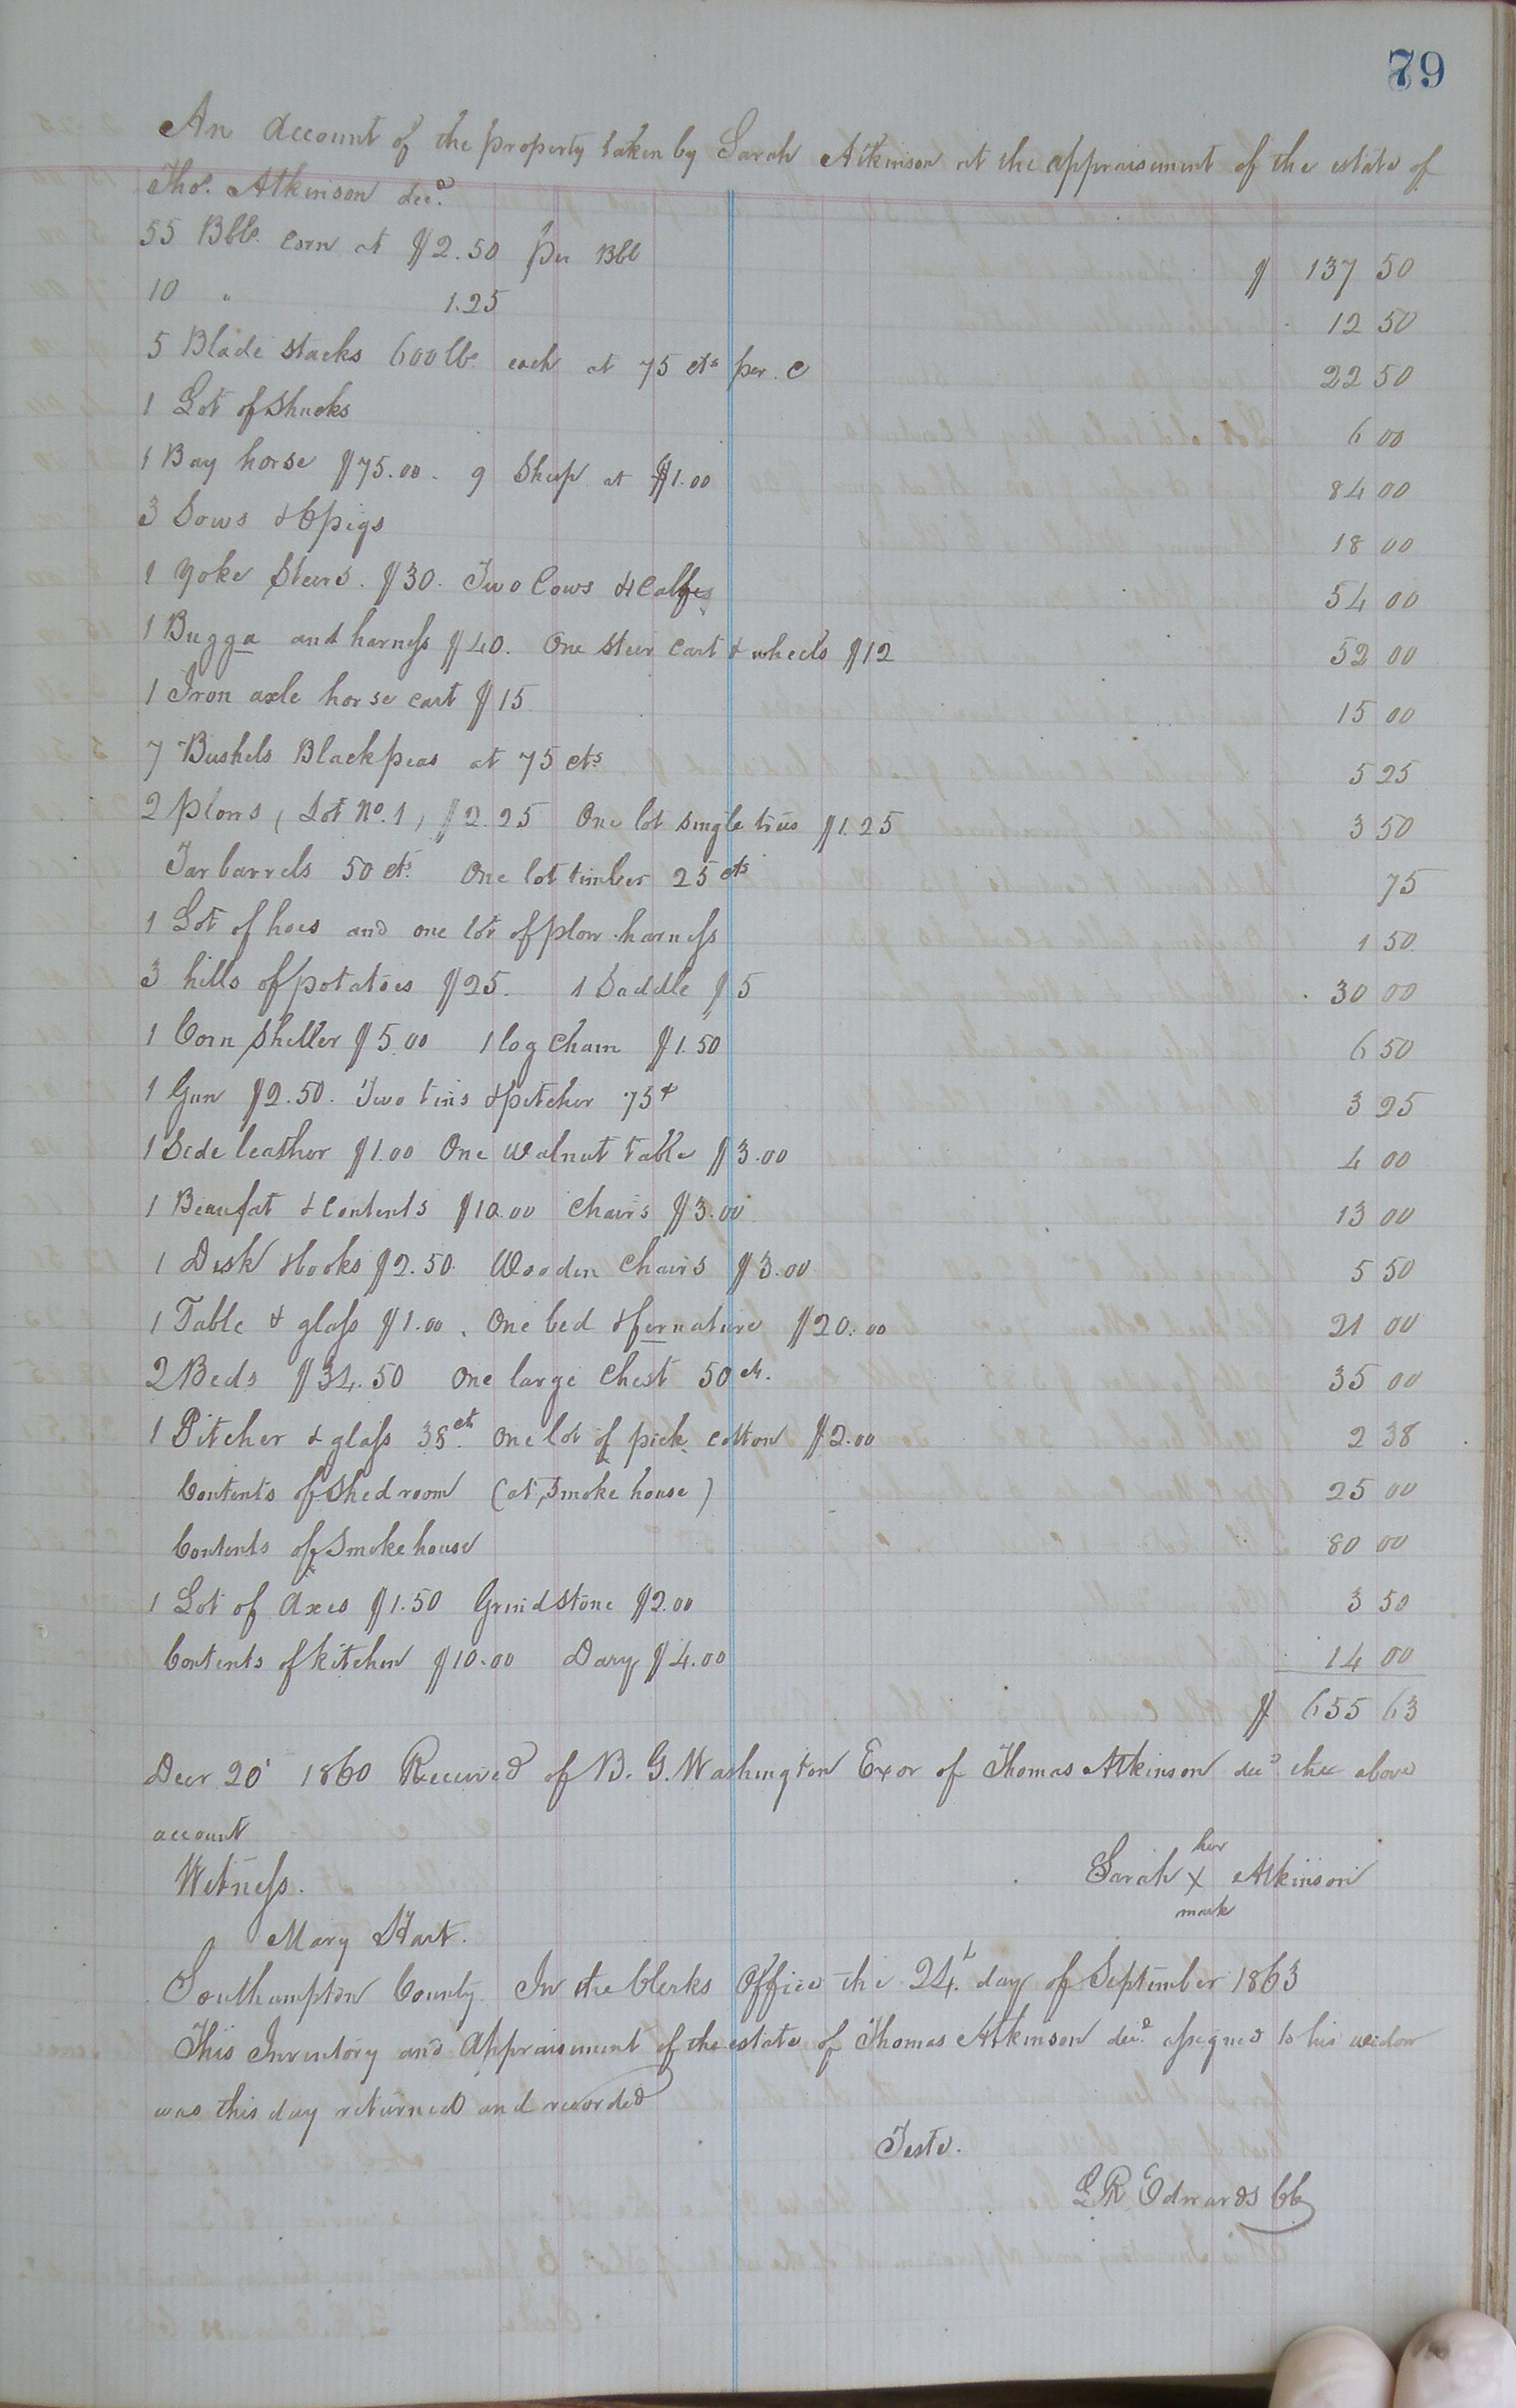 79
An Account of the property taken by Sarah Atkinson at the appraisement of the estate of
Thos. Atkinson decd.
55 Bbls. corn at $2.50 per Bbl $ 137 50
10 " 1.25 12 50
5 Blade stacks 600 lbs. each at 75 cts per. C 22 50
1 Lot of Shucks 6 00
1 Bay horse $75.00. 9 Sheep at $1.00 84 00
3 Sows & 6 pigs 18 00
1 Yoke Steers. $30. Two Cows & Calfes 54 00
1 Bugga and harness $40. One steer cart & wheels $12 52 00
1 Iron axle horse cart $15 15 00
7 Bushels Black peas at 75 cts 5 25
2 Plows, Lot No. 1, $2.25 One lot single trees $1.25 3 50
Tar barrels 50 cts. One lot timber 25 cts 75
1 Lot of hoes and one lot of plow harness 1 50
3 hills of potatoes $25. 1 Saddle $5 30 00
1 Corn Sheller $5.00 1 log Chain $1.50 6 50
1 Gun $2.50. Two tins & pitcher .75 3 25
1 Side leather $1.00 One Walnut table $3.00 4 00
1 Beaufat & Contents $10.00 Chairs $3.00 13 00
1 Desk & books $2.50. Wooden Chairs $3.00 5 50
1 Table & glass $1.00. One bed & fernature $20.00 21 00
2 Beds $34.50 One large Chest 50 ct. 35 00
1 Pitcher & glass 38 ct. One lot of pick cotton $2.00 2 38
Contents of Shed room (at Smoke house) 25 00
Contents of Smoke house 80 00
1 Lot of Axes $1.50 Grindstone $2.00 3 50
Contents of kitchen $10.00 Dary $4.00 14 00
$ 655 63
Decr 20' 1860 Received of B. G. Washington Exor of Thomas Atkinson decd the above
account
Witness. Sarah her X mark Atkinson
Mary Hart.
Southampton County In the Clerks Office the 24th. day of September 1863
This Inventory and Appraisement of the estate of Thomas Atkinson decd. assigned to his widow
was this day returned and recorded
Teste.
L R Edwards CC